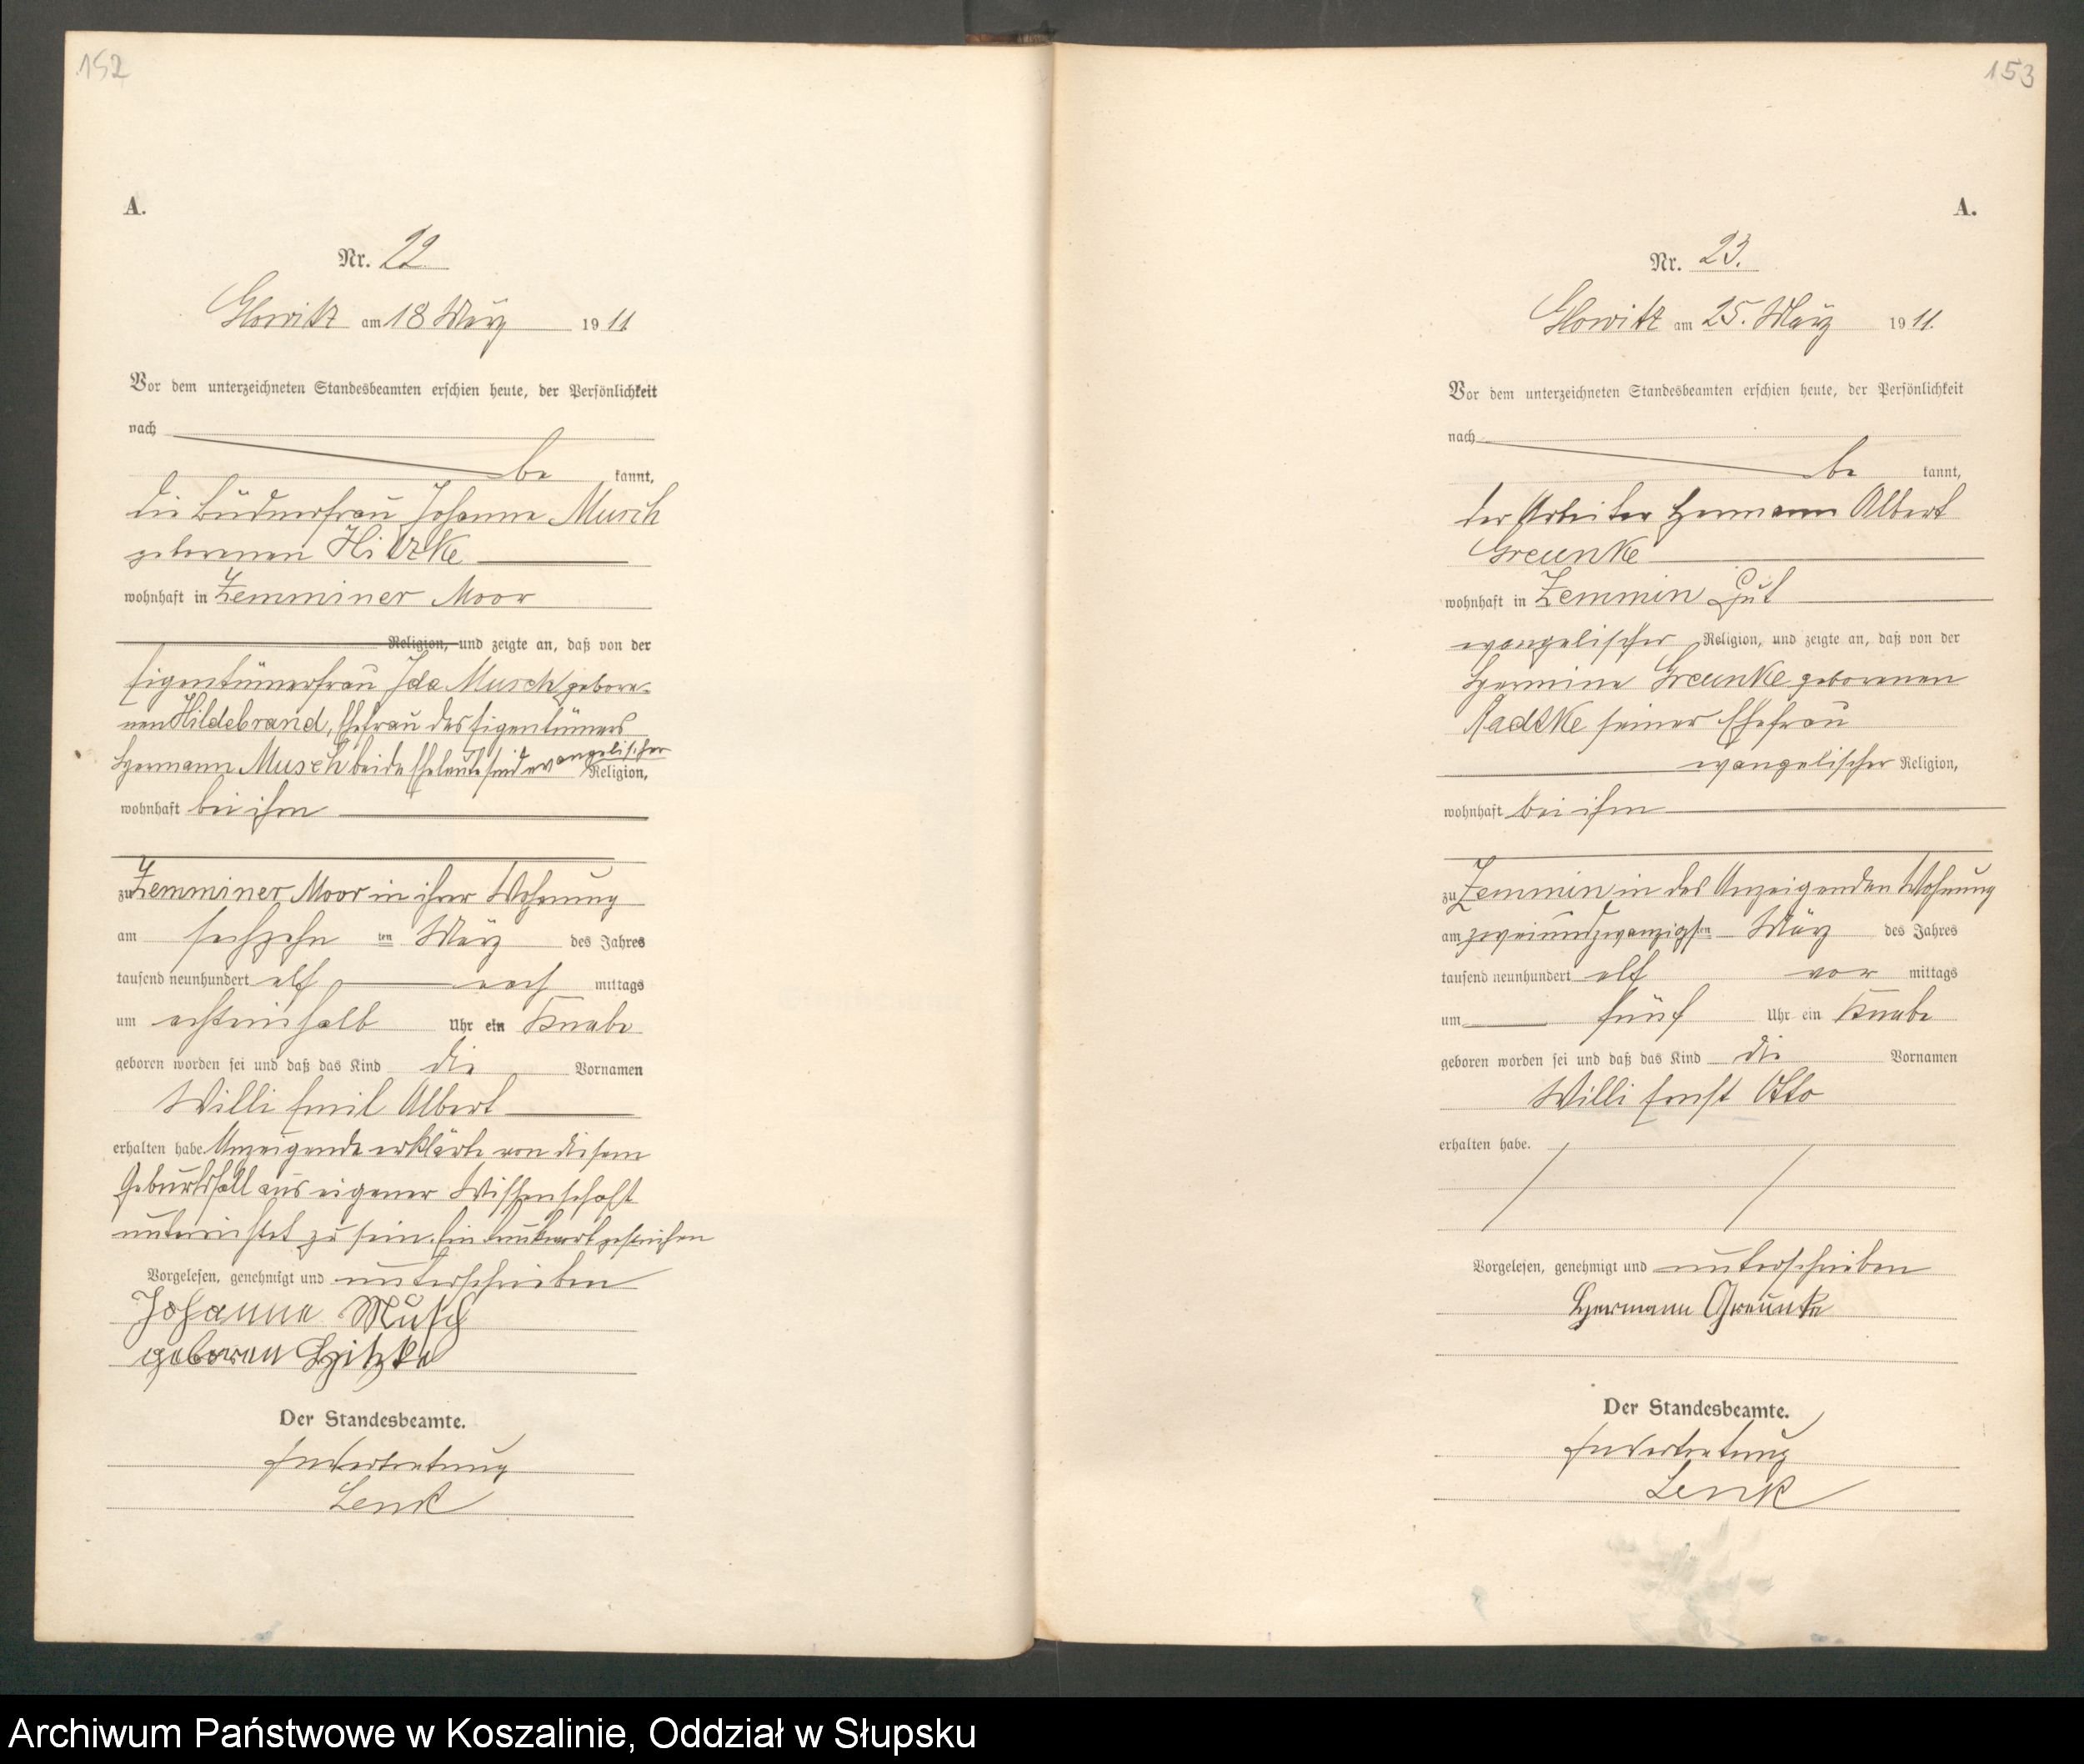 152
A.
Nr. 22
Glowitz am 18 März 1911
Vor dem unterzeichneten Standesbeamten erschien heute, der Persönlichkeit
nach
be kannt,
die Büdnerfrau Johanne Musch
geborenen Hitzke
wohnhaft in Zemminer Moor
Religion, und zeigte an, daß von der
Eigentümerfrau Ida Musch gebore-
nen Hildebrand, Ehefrau des Eigentümers
Hermann Musch beide Eheleute sind evangelischer
Religion,
wohnhaft bei ihm
zu Zemminer Moor in ihrer Wohnung
am sechzehn ten März des Jahres
tausend neunhundert elf nach mittags
um achteinhalb Uhr ein Knabe
geboren worden sei und daß das Kind die Vornamen
Willi Emil Albert
erhalten habe. Anzeigende erklärte von diesem
Geburtsfall aus eigener Wissenschaft
unterrichtet zu sein. Ein Druckwort gestrichen
Vorgelesen, genehmigt und unterschrieben
Johanne Musch
geboren Hitzke
Der Standesbeamte.
In Vertretung
Lenk
153
A.
Nr. 23.
Glowitz am 25. März 1911.
Vor dem unterzeichneten Standesbeamten erschien heute, der Persönlichkeit
nach
be kannt,
der Arbeiter Hermann Albert
Greunke
wohnhaft in Zemmin Gut
evangelischer Religion, und zeigte an, daß von der
Hermine Greunke geborenen
Radtke seiner Ehefrau
evangelischer Religion,
wohnhaft bei ihm
zu Zemmin in des Anzeigenden Wohnung
am zweiundzwanzigsten März des Jahres
tausend neunhundert elf vor mittags
um fünf Uhr ein Knabe
geboren worden sei und daß das Kind die Vornamen
Willi Ernst Otto
erhalten habe.
Vorgelesen, genehmigt und unterschrieben
Hermann Greunke
Der Standesbeamte.
In Vertretung
Lenk
Archiwum Państwowe w Koszalinie, Oddział w Słupsku